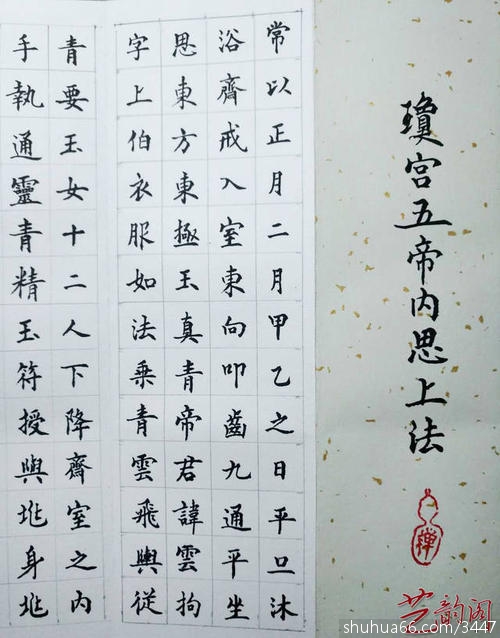 瓊宫五帝内思上法
常以正月二月甲乙之日平旦沐
浴齊戒入室東向叩齒九通平坐
思東方東極玉真青帝君諱雲拘
字上伯衣服如法乗青雲飛輿従
青要玉女十二人下降齊室之内
手執通靈青精玉符授與兆身兆
禅
艺韵阁
shuhua66.com/3447